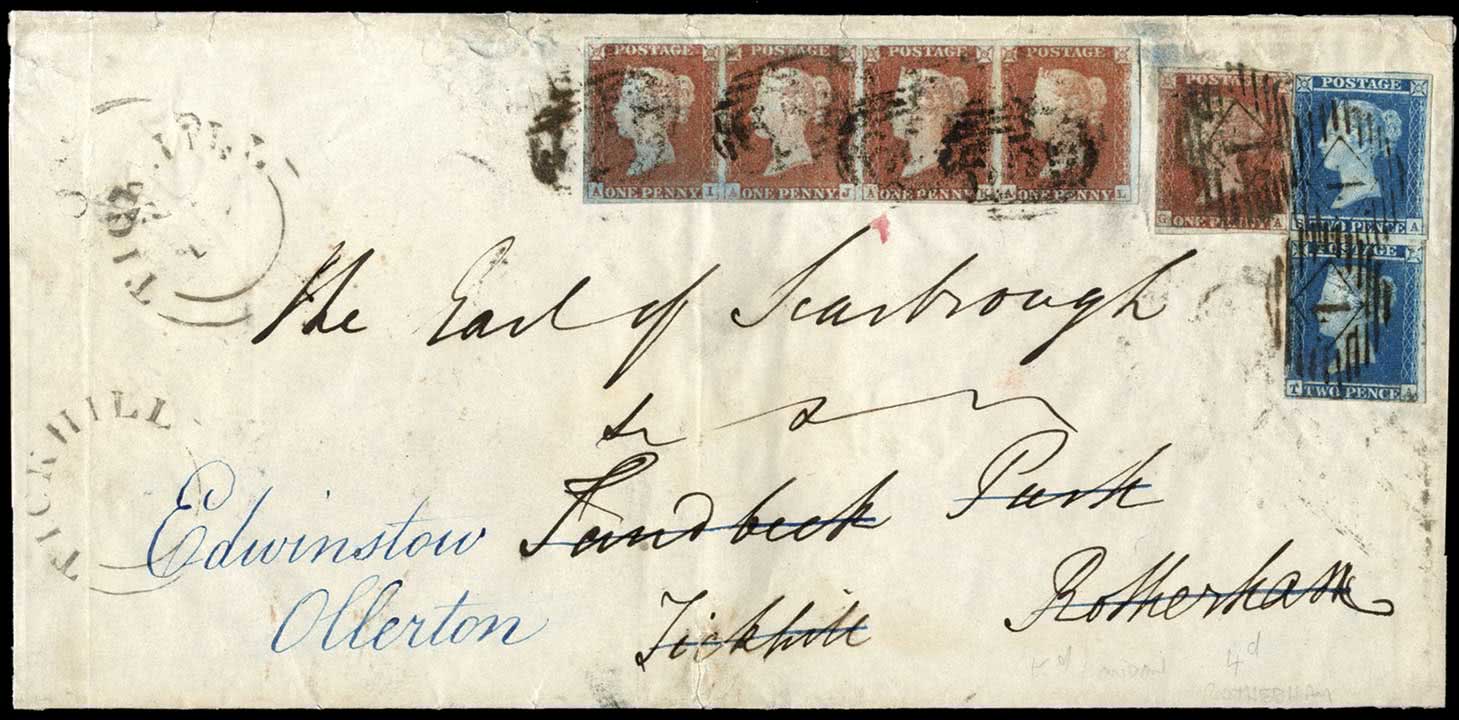 POSTAGE POSTAGE POSTAGE POSTAGE
A ONE PENNY I A ONE PENNY J A ONE PENNY K A ONE PENNY L
POSTAGE POSTAGE
G ONE PENNY A S TWO PENCE A
POSTAGE
T TWO PENCE A
1
1
1
TICKHILL
The Earl of Scarbrough
Sandbeck Park
TICKHILL
Edwinstow
Ollerton
Tickhill
Rotherham
4d
ROTHERHAM